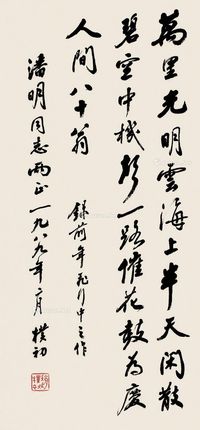 萬里光明雲海上半天閑散
碧空中機聲一路催花鼓為慶
人間八十翁
錄前年飛行中之作
潘明同志兩正一九八九年二月 樸初